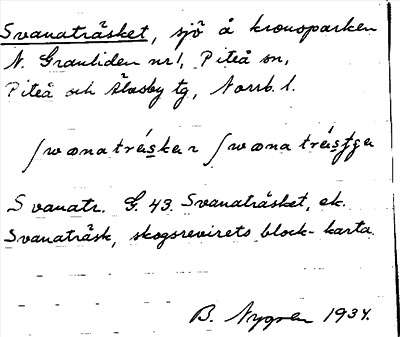 Svanaträsket, sjö å kronoparken
N. Granliden nr 1, Piteå sn,
Piteå och Älvsby tg, Norrb. l.
ʃwanatráskar ʃwanatrástga
Svanatr. G. 43. Svanaträsket, ek.
Svanaträsk, skogsrevirets block-karta.
B. Nygren 1934.